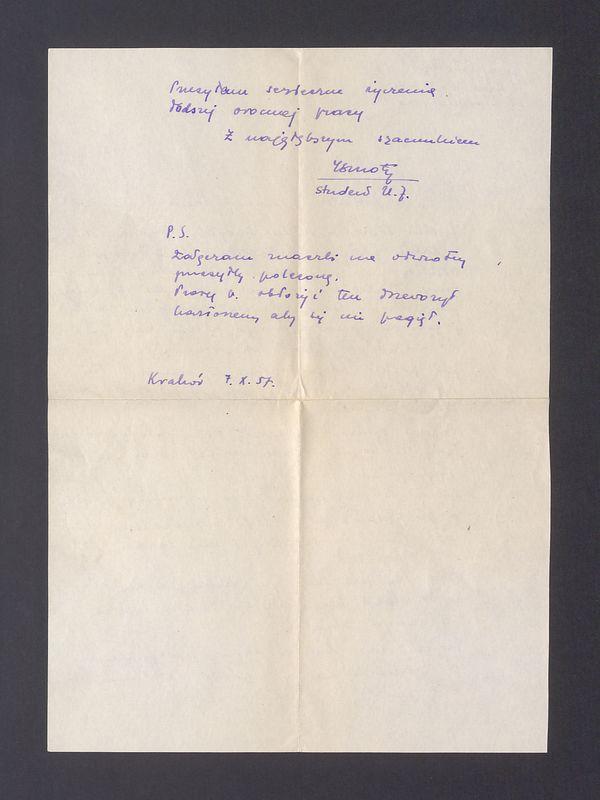 Przesyłam serdeczne życzenia
dalszej owocnej pracy
Z najgłębszym szacunkiem
student U.J.
P.S.
Załączam znaczki na odwrotną
przesyłkę poleconą.
Proszę b. obłożyć ten drzeworyt
kartonem aby się nie pogiął.
Kraków 7. X. 57.